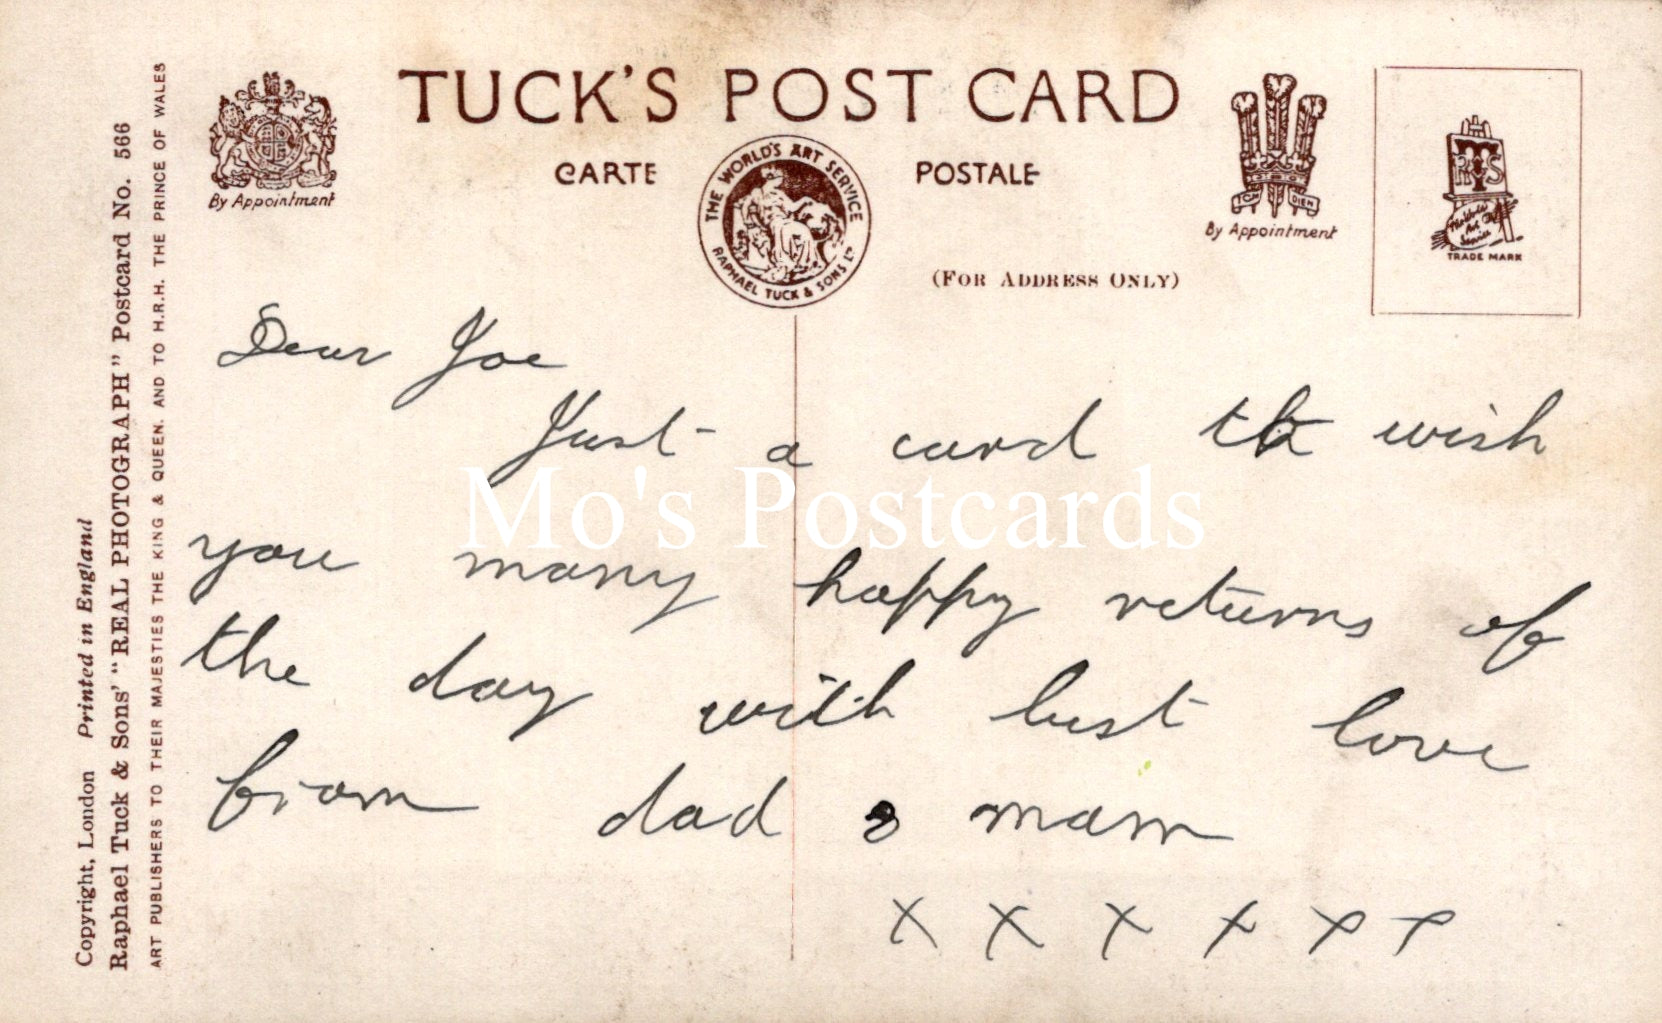 TUCK'S POST CARD
CARTE POSTALE
THE WORLD'S ART SERVICE
RAPHAEL TUCK & SONS LTD
By Appointment
ICH DIEN
By Appointment
RTS
TRADE MARK
(FOR ADDRESS ONLY)
Copyright, London Printed in England
Raphael Tuck & Sons' "REAL PHOTOGRAPH" Postcard No. 566
ART PUBLISHERS TO THEIR MAJESTIES THE KING & QUEEN, AND TO H.R.H. THE PRINCE OF WALES
Dear Joe
Just a card to wish
you many happy returns of
the day with best love
from dad & mam
x x x x x x
Mo's Postcards